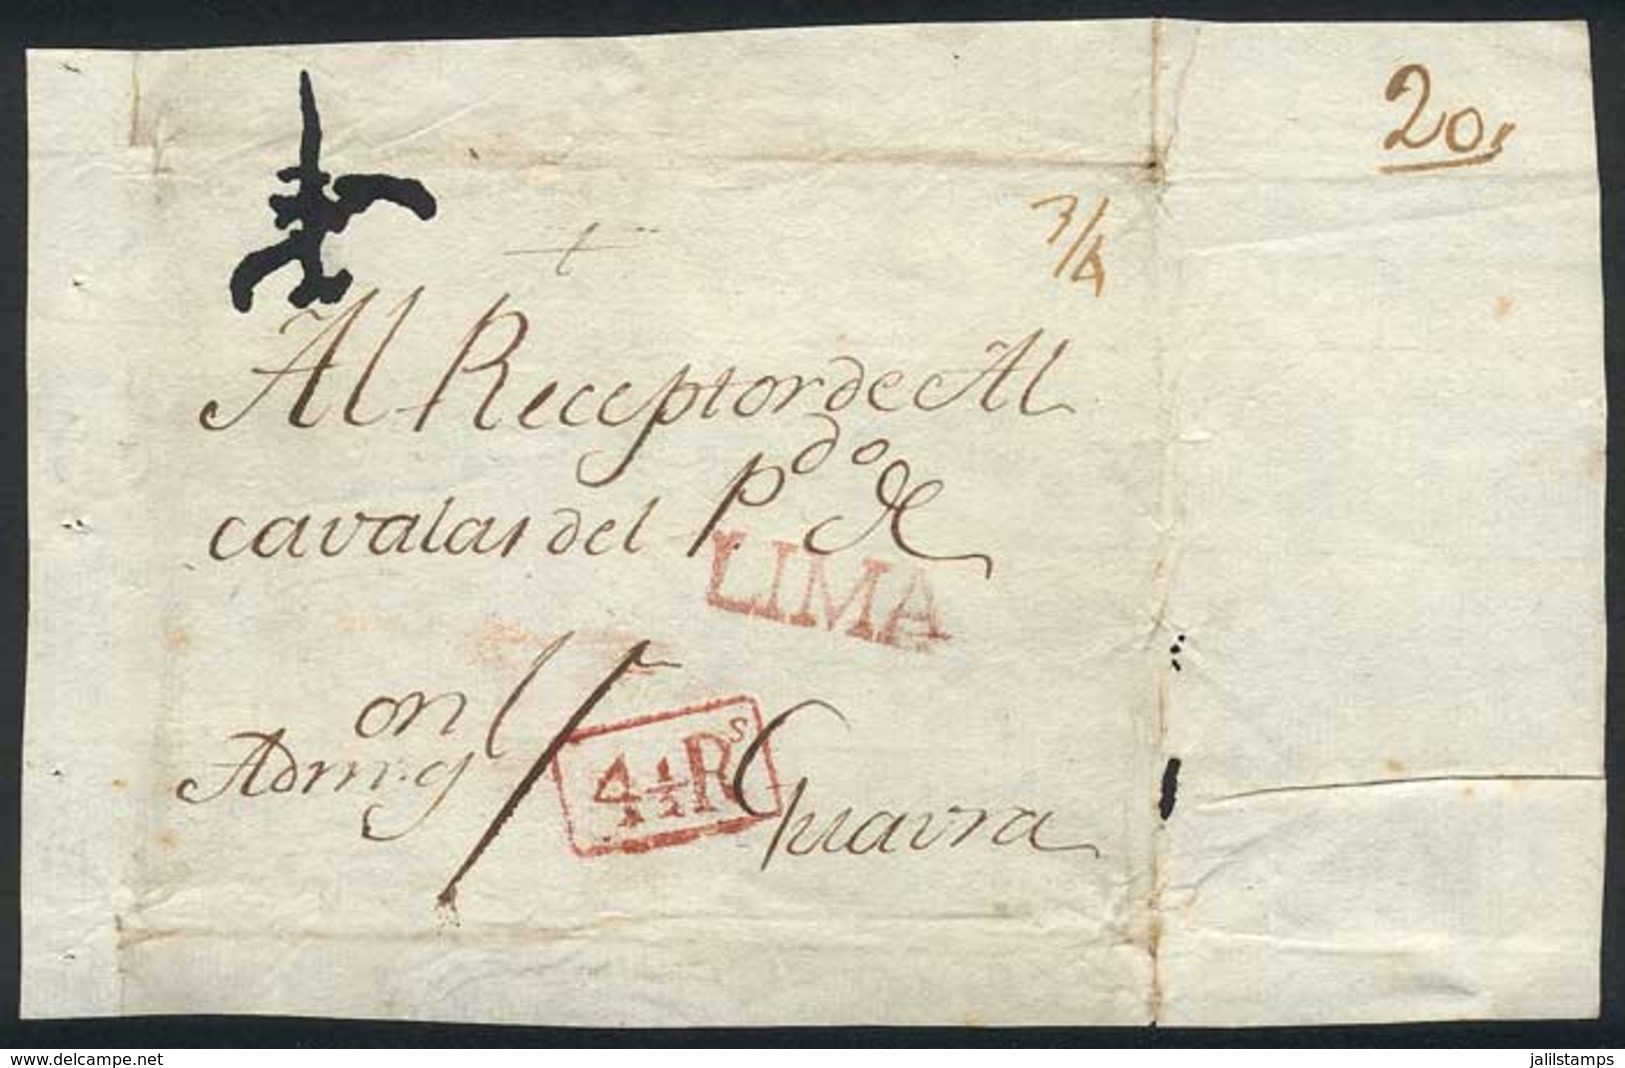 20
3/4
Al Receptor de Al
cavalas del P.do de
LIMA
4½Rs
Guavra
www.delcampe.net
jalilstamps